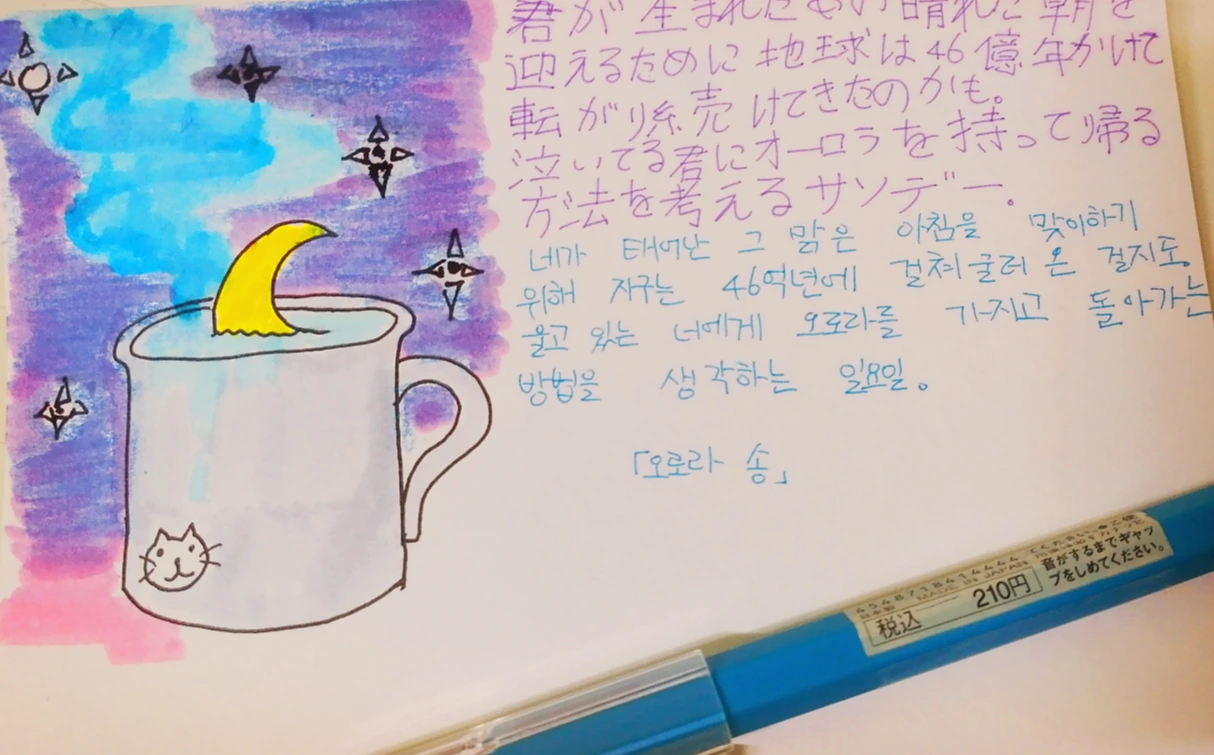 君が生まれたあの晴れた朝を
迎えるために地球は46億年かけて
転がり続けてきたのかも。
泣いてる君にオーロラを持って帰る
方法を考えるサンデー。
네가 태어난 그 맑은 아침을 맞이하기
위해 지구는 46억년에 걸쳐 굴러 온 걸지도.
울고 있는 너에게 오로라를 가지고 돌아가는
방법을 생각하는 일요일。
「오로라 송」
音がするまでギャッ
プをしめてください。
4548718414444
日本製 MADE IN JAPAN
税込 210円